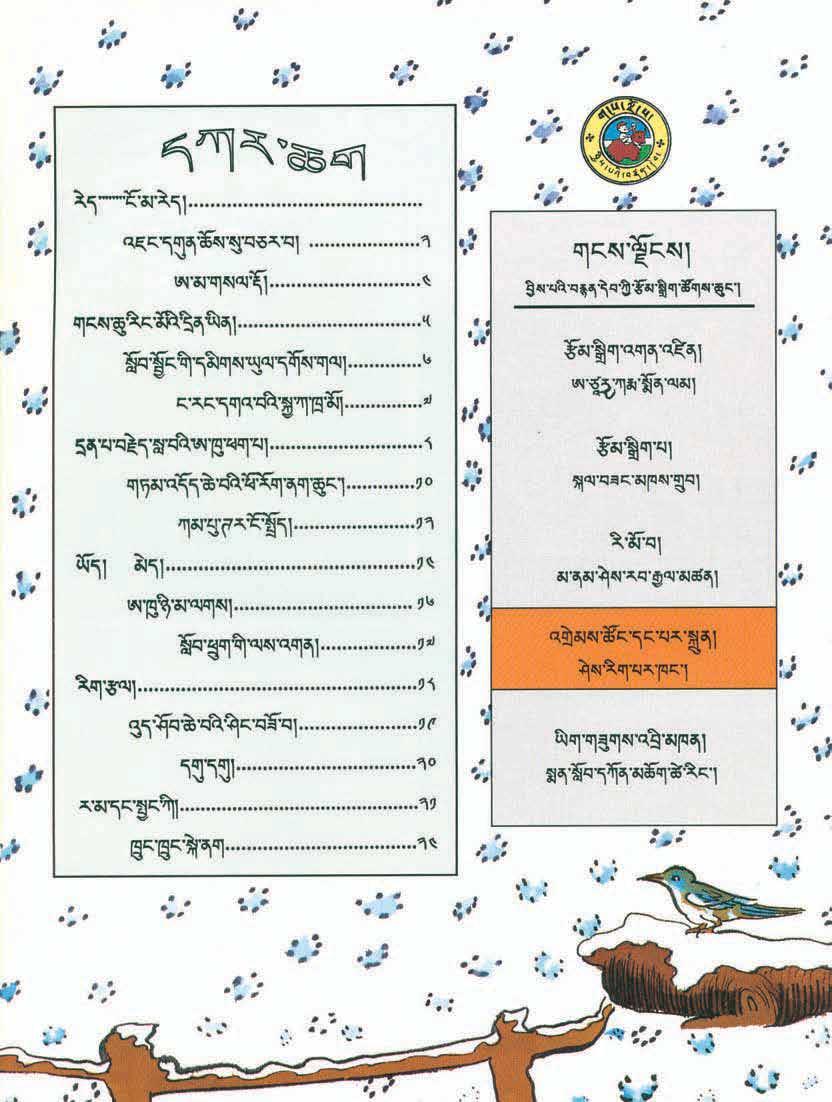 དཀར་ཆག
རེད་་་་་་་ངོ་མ་རེད།......................................
འཛང་དགུན་ཆོས་སུ་བཅར་བ། ..................༢
ཨ་མ་གསལ་རྡོ།..........................༤
གངས་ཆུ་རིང་མོའི་དྲིན་ཡིན།..............................༥
སློབ་སྦྱོང་གི་དམིགས་ཡུལ་དགོས་གལ།............༦
ང་རང་དགའ་བའི་སྐྱ་ཀ་ཁྲ་མོ།............༧
དྲན་པ་བརྗེད་སླ་བའི་ཨ་ཁུ་ཕག་པ།........................༨
གཏམ་འདོད་ཆེ་བའི་ཕོ་རོག་ནག་ཆུང་།............༡༠
ཀམ་པུ་ཊར་ངོ་སྤྲོད།....................༡༢
ཡོད། མེད།..........................................༡༤
ཨ་ཁུ་ཉི་མ་ལགས།..............................༡༦
སློབ་ཕྲུག་གི་ལས་འགན།................༡༧
རིག་རྩལ།..............................................༡༨
འུད་ཤོབ་ཆེ་བའི་ཤིང་བཟོ་བ།....................༡༩
དགུ་དགུ།..............................༢༠
ར་མ་དང་སྤྱང་ཀི།........................................༢༡
ཁྲུང་ཁྲུང་སྐེ་ནག................................༢༤
གངས་ལྗོངས།
བྱིས་པའི་བརྙན་དེབ་ཀྱི་རྩོམ་སྒྲིག་ཚོགས་ཆུང་།
རྩོམ་སྒྲིག་འགན་འཛིན།
ཨ་ཙཱརྱ་ཀརྨ་སྨོན་ལམ།
རྩོམ་སྒྲིག་པ།
སྐལ་བཟང་མཁས་གྲུབ།
རི་མོ་བ།
མ་ནམ་ཤེས་རབ་རྒྱལ་མཚན།
འགྲེམས་ཚོང་དང་པར་སྐྲུན།
ཤེས་རིག་པར་ཁང་།
ཡིག་གཟུགས་འབྲི་མཁན།
སྨན་སློབ་དཀོན་མཆོག་ཚེ་རིང་།